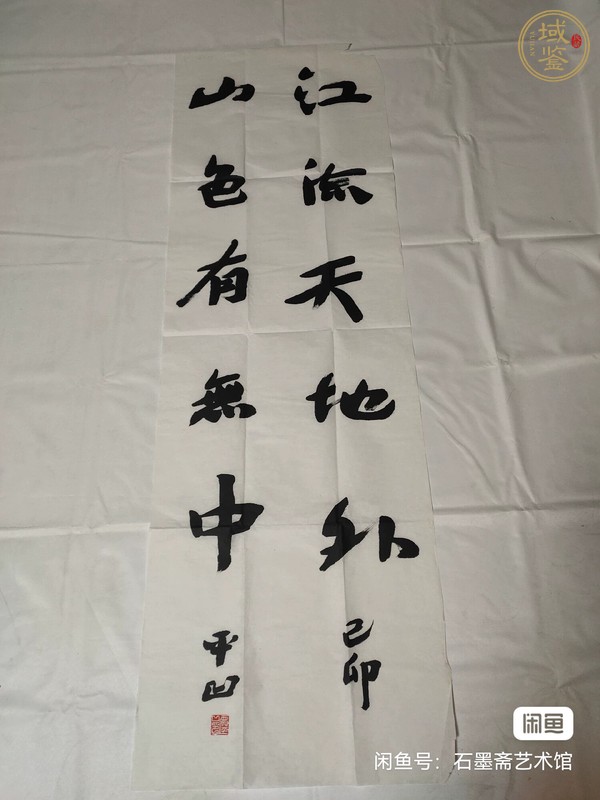 江流天地外
己卯
山色有無中
平凹
域鉴
YUJIAN
闲鱼
闲鱼号：石墨斋艺术馆